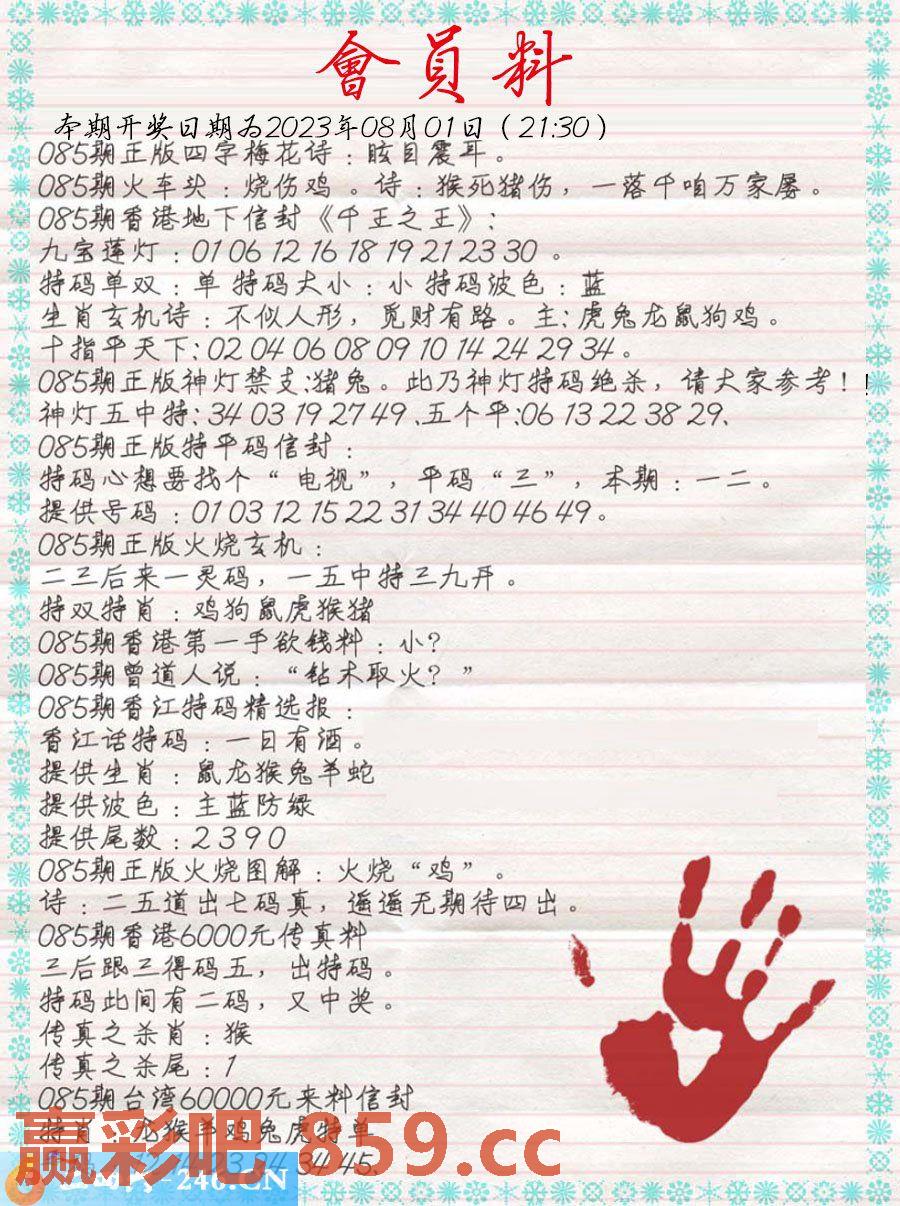 會員料
本期开奖日期为2023年08月01日（21:30）
085期正版四字梅花诗：眩目震耳。
085期火车头：烧伤鸡 。诗：猴死猪伤，一落千咱万家屡。
085期香港地下信封《千王之王》：
九宝莲灯：01 06 12 16 18 19 21 23 30 。
特码单双：单 特码大小：小 特码波色：蓝
生肖玄机诗：不似人形，觅财有路。主：虎兔龙鼠狗鸡。
十指平天下：02 04 06 08 09 10 14 24 29 34 。
085期正版神灯禁支:猪兔。此乃神灯特码绝杀，请大家参考！！
神灯五中特：34 03 19 27 49 .五个平:06 13 22 38 29、
085期正版特平码信封：
特码心想要找个“ 电视”，平码“三”，本期：一二。
提供号码：01 03 12 15 22 31 34 40 46 49。
085期正版火烧玄机：
二三后来一灵码，一五中特三九开。
特双特肖：鸡狗鼠虎猴猪
085期香港第一手欲钱料：小？
085期曾道人说：“钻木取火？”
085期香江特码精选报：
香江话特码：一日有酒。
提供生肖：鼠龙猴兔羊蛇
提供波色：主蓝防绿
提供尾数：2 3 9 0
085期正版火烧图解：火烧“鸡”。
诗：二五道出七码真，遥遥无期待四出。
085期香港6000元传真料
三后跟三得码五，出特码。
特码此间有二码，又中奖。
传真之杀肖：猴
传真之杀尾：1
085期台湾60000元来料信封
特肖：龙猴羊鸡兔虎特单
34 45、
赢彩吧.859.cc
246.CN